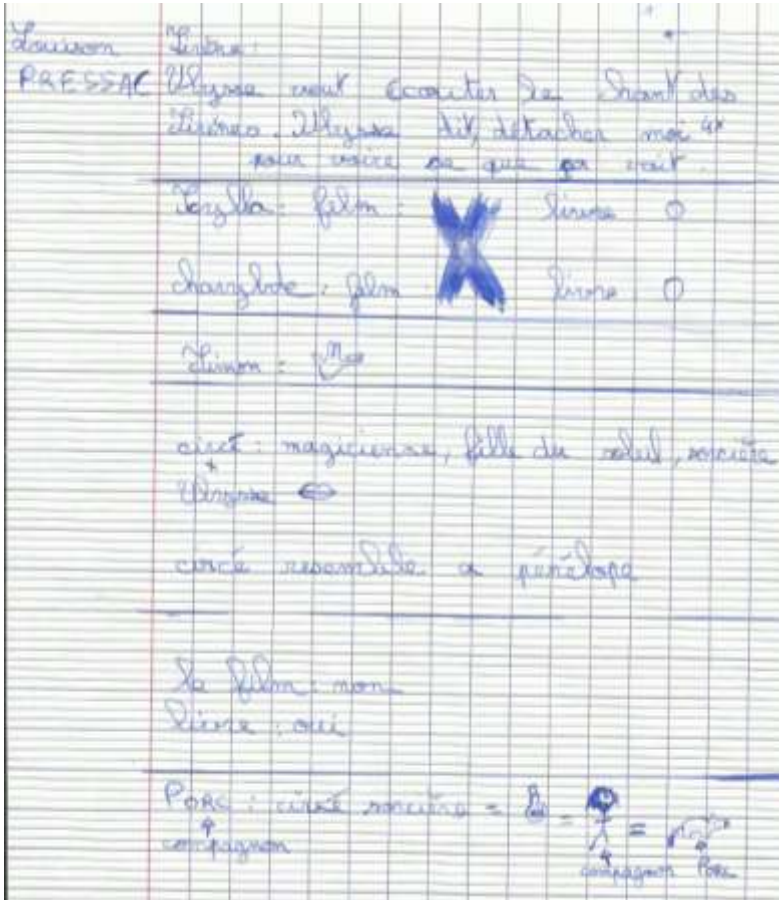 Louison Sirène :
PRESSAC Ulysse veut écouter le Shant des
Sirènes. Ulysse dit, détacher moi 4x
pour voire se que ça vait.
Scylla : film : X livre O
charybde : film X livre O
Simon :
circé : magicienne, fille du soleil, sorcière
+
Ulysse
circé resemble a pénélope
le film : non
livre : oui
PORC : circé sorcière = = =
compagnon
compagnon Porc